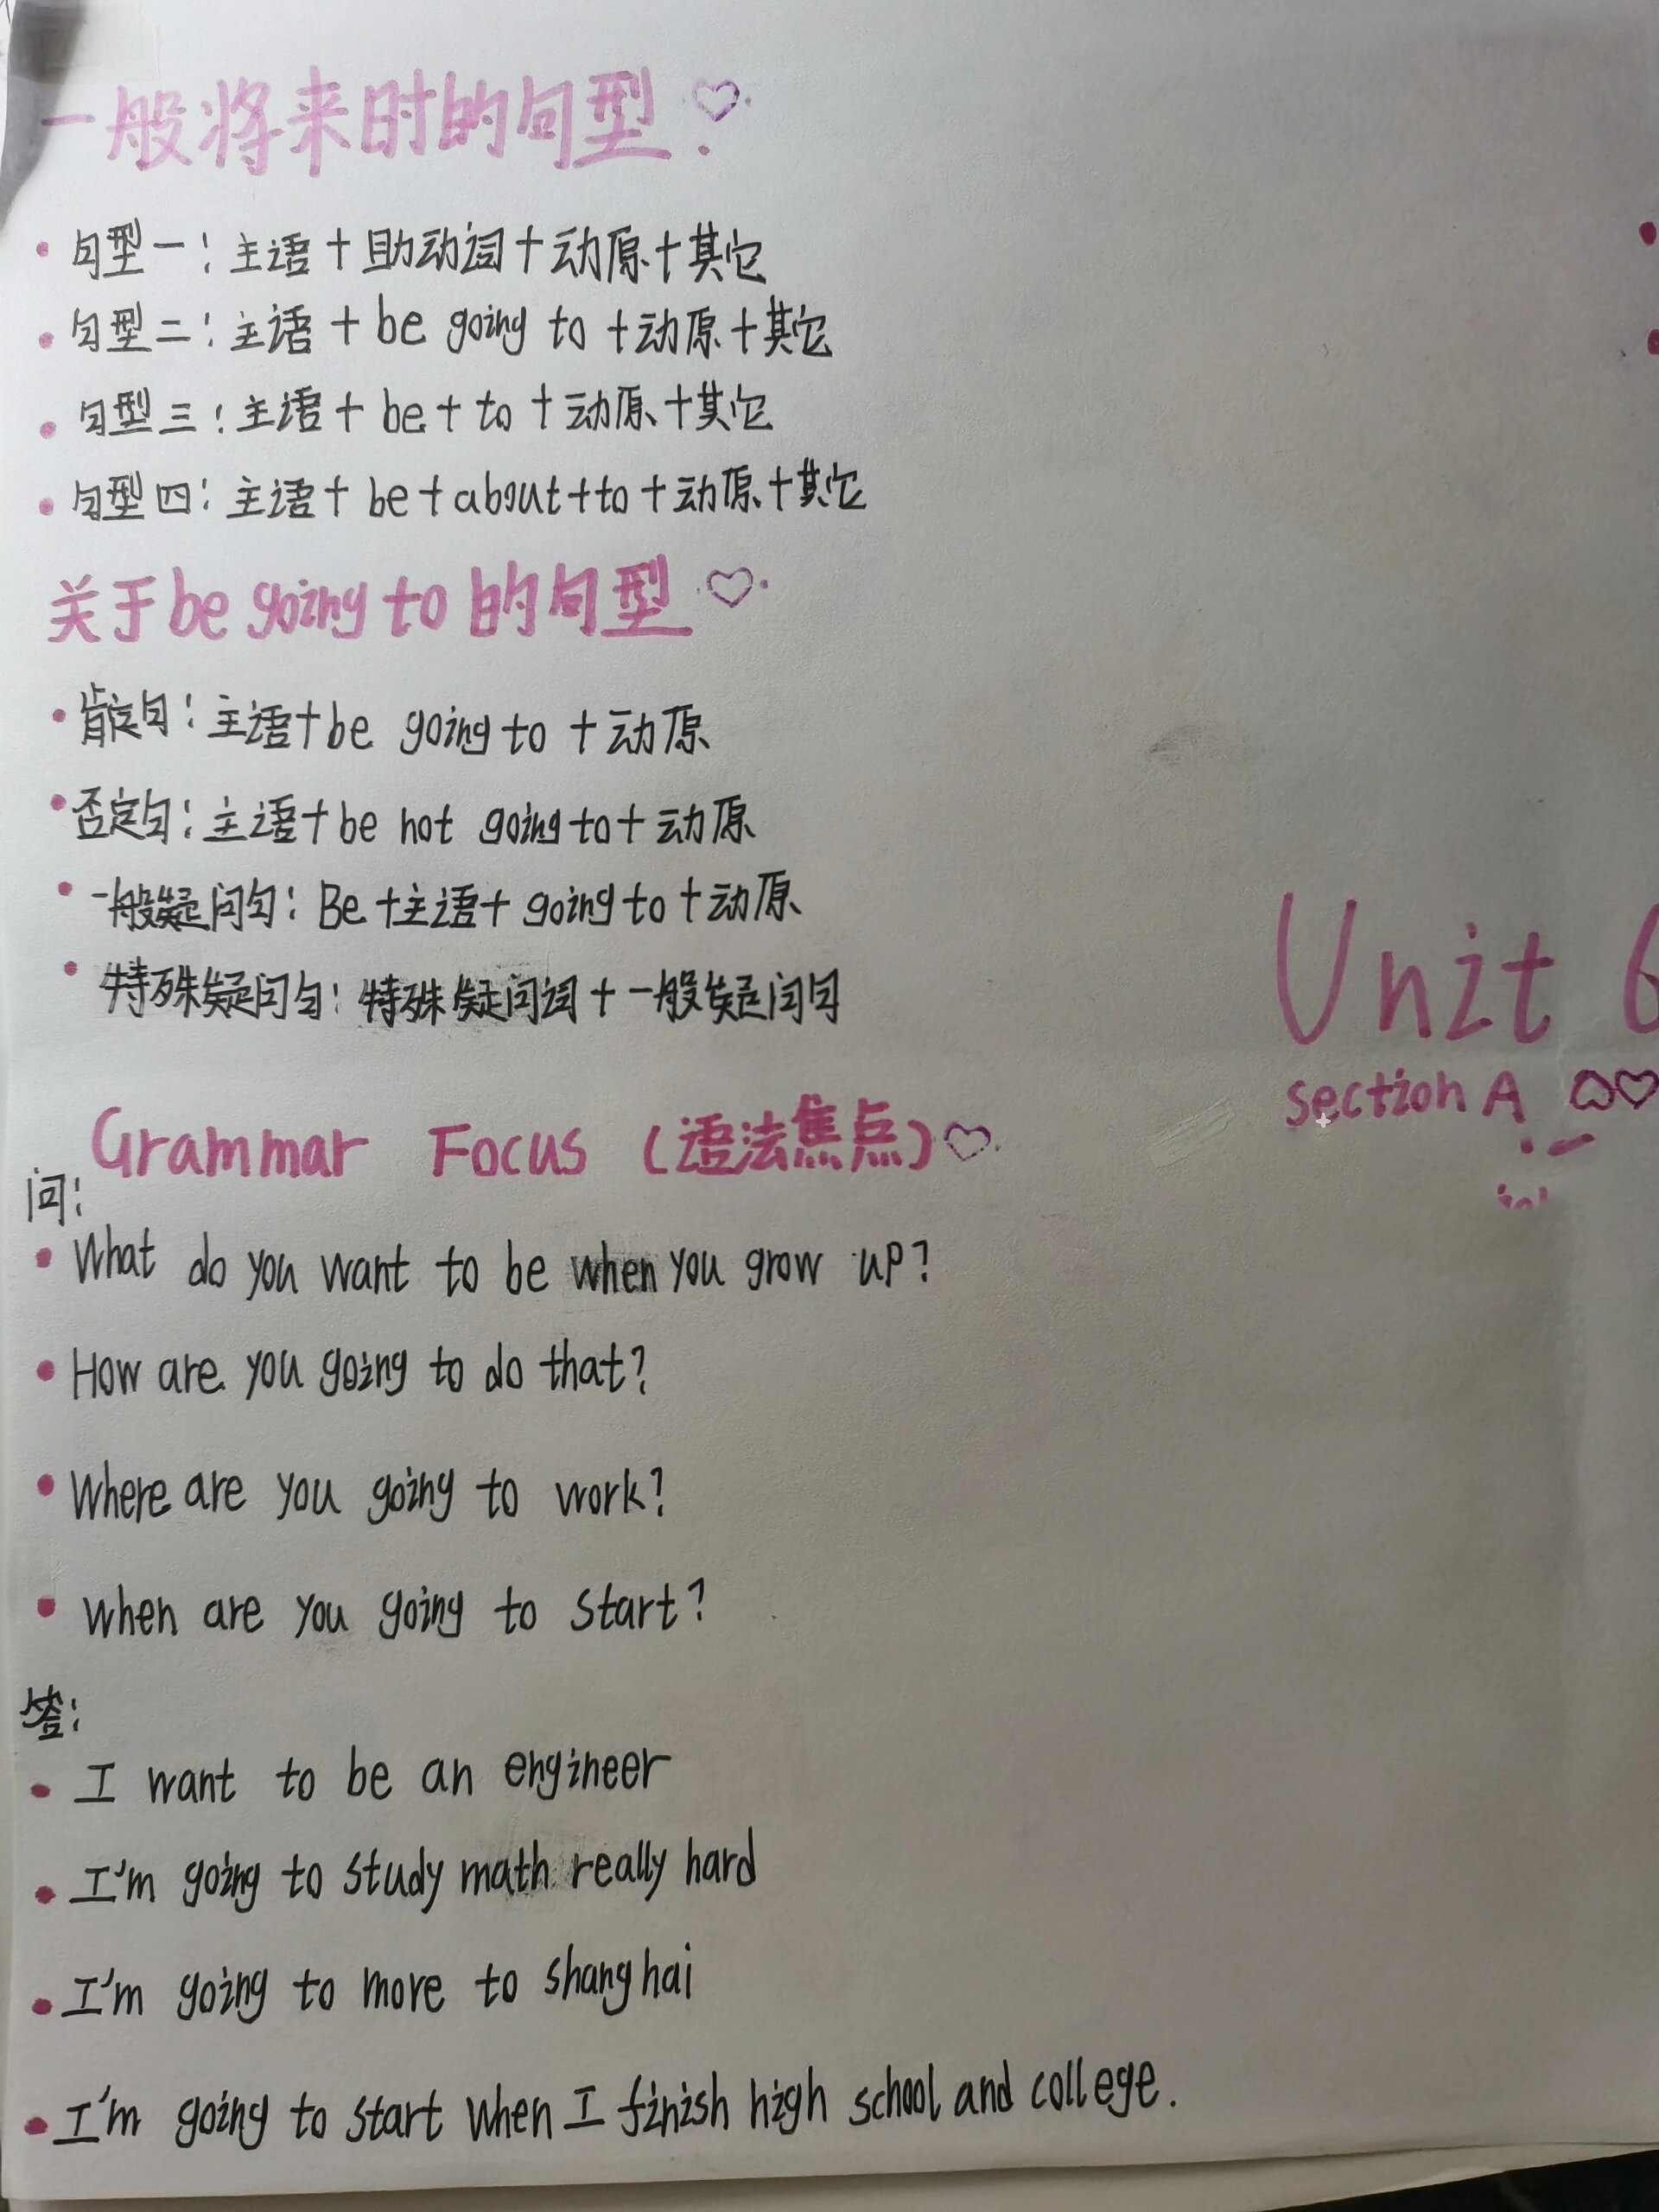 一般将来时的句型
句型一：主语+助动词+动原+其它
句型二：主语+be going to+动原+其它
句型三：主语+be+to+动原+其它
句型四：主语+be+about+to+动原+其它
关于be going to的句型
肯定句：主语+be going to+动原
否定句：主语+be not going to+动原
一般疑问句：Be+主语+going to+动原
特殊疑问句：特殊疑问词+一般疑问句
Grammar Focus（语法焦点）
问：
What do you want to be when you grow up?
How are you going to do that?
Where are you going to work?
when are you going to start?
答：
I want to be an engineer
I'm going to study math really hard
I'm going to more to shanghai
I'm going to start when I finish high school and college.
Unit 6
section A